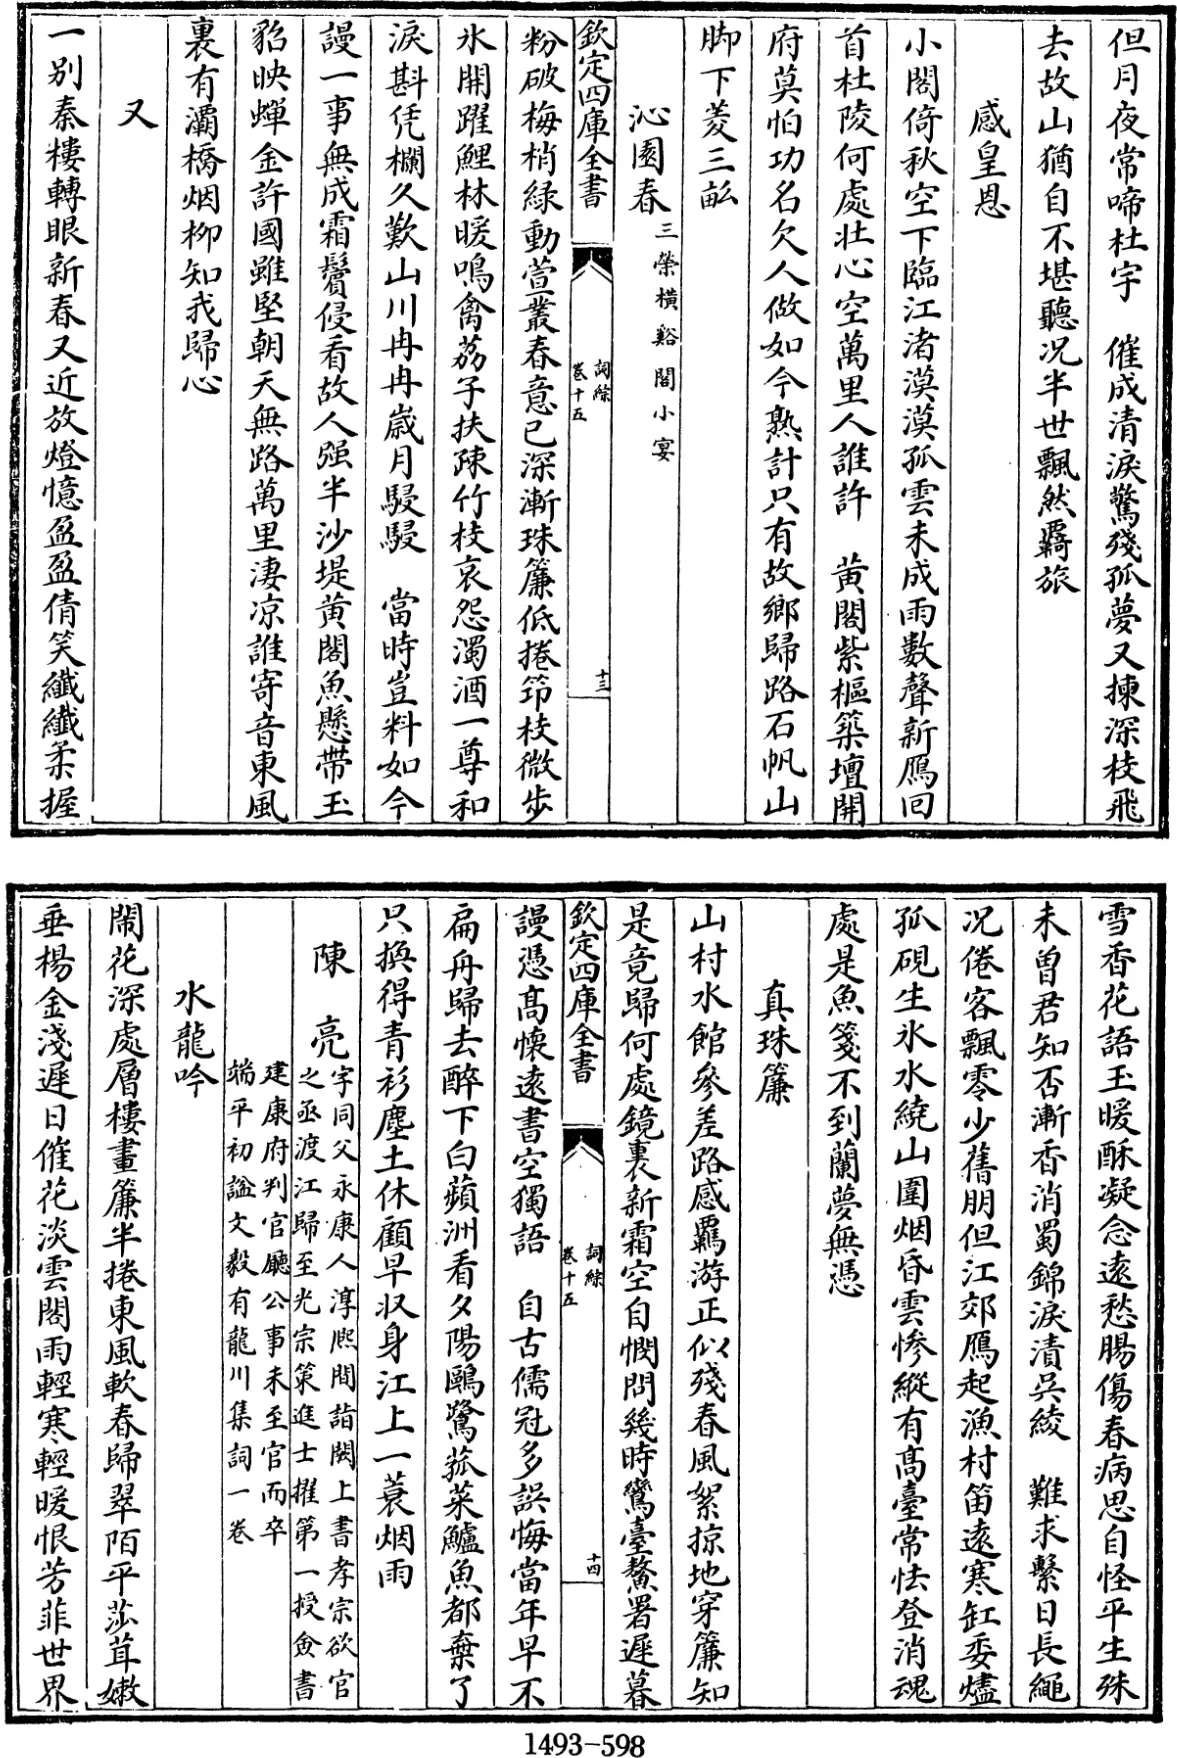 但月夜常啼杜宇　催成清淚驚殘孤夢又揀深枝飛
去故山猶自不堪聽况半世飄然覊旅
感皇恩
小閣倚秋空下臨江渚漠漠孤雲未成雨數聲新鴈回
首杜陵何處壯心空萬里人誰許　黄閣紫樞築壇開
府莫怕功名欠人做如今熟計只有故鄉歸路石帆山
脚下菱三畝
沁園春三榮橫谿閣小宴
粉破梅梢緑動萱叢春意已深漸珠簾低捲筇枝微步
氷開躍鯉林暖鳴禽荔子扶疎竹枝哀怨濁酒一尊和
淚斟凭欄久歎山川冉冉歳月駸駸　當時豈料如今
謾一事無成霜鬢侵看故人强半沙堤黄閣魚懸帶玉
貂映蟬金許國雖堅朝天無路萬里凄凉誰寄音東風
裏有灞橋烟栁知我歸心
又
一别秦樓轉眼新春又近放燈憶盈盈倩笑纖纖柔握
欽定四庫全書
詞綜
卷十五
十三
雪香花語玉暖酥凝念遠愁腸傷春病思自怪平生殊
未曽君知否漸香消蜀錦淚漬吳綾　難求繫日長繩
况倦客飄零少舊朋但江郊鴈起漁村笛遠寒缸委燼
孤硯生氷水繞山圍烟昏雲慘縱有髙臺常怯登消魂
處是魚箋不到蘭夢無憑
真珠簾
山村水館參差路感羈游正似殘春風絮掠地穿簾知
是竟歸何處鏡裏新霜空自憫問幾時鸞臺鰲署遲暮
謾憑髙懷遠書空獨語　自古儒冠多誤悔當年早不
扁舟歸去醉下白蘋洲看夕陽鷗鷺菰菜鱸魚都棄了
只換得青衫塵土休顧早收身江上一蓑烟雨
陳　亮字同父永康人淳熈間詣闕上書孝宗欲官
之亟渡江歸至光宗策進士擢第一授僉書
建康府判官廳公事未至官而卒
端平初諡文毅有龍川集詞一卷
水龍吟
鬧花深處層樓畫簾半捲東風軟春歸翠陌平莎茸嫩
垂楊金淺遲日催花淡雲閣雨輕寒輕暖恨芳菲世界
欽定四庫全書
詞綜
卷十五
十四
1493-598